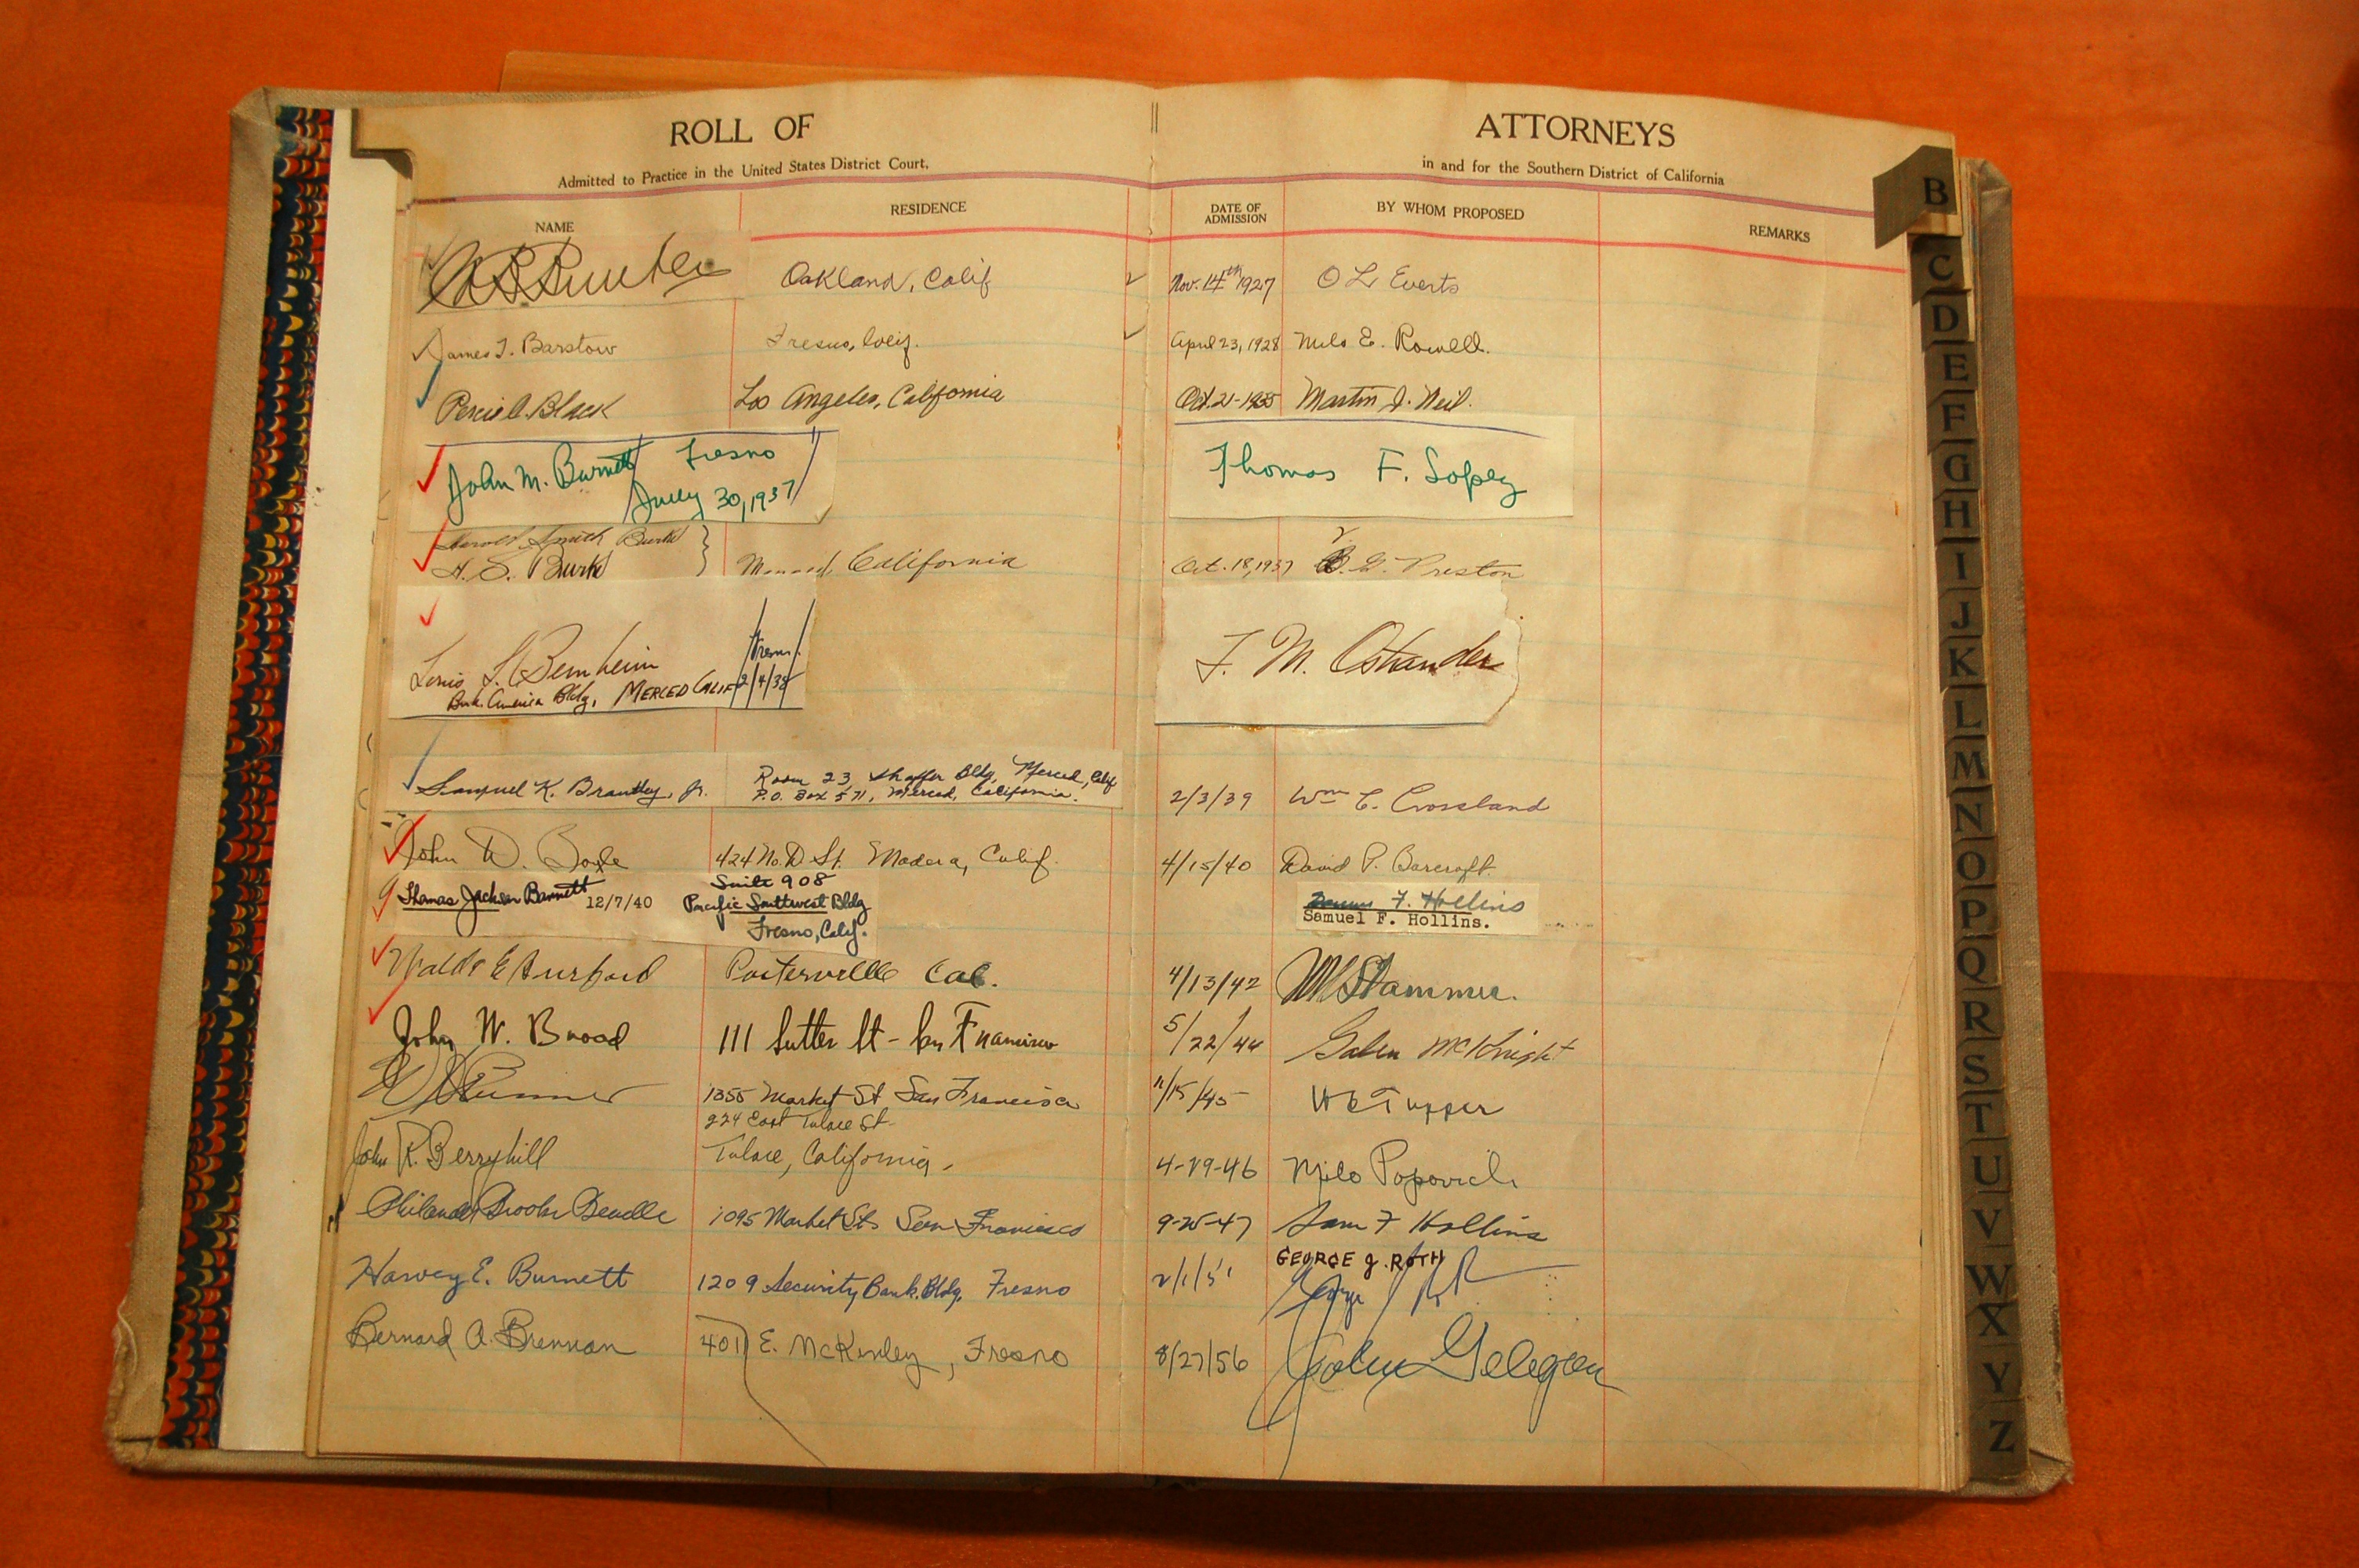 ROLL OF ATTORNEYS
Admitted to Practice in the United States District Court, in and for the Southern District of California
NAME RESIDENCE DATE OF ADMISSION BY WHOM PROPOSED REMARKS
Oakland, Calif Nov. 14th 1927 O L Everts
James T. Barstow Fresno, Calif. April 23, 1928 Milo E. Rowell.
Percie A. Black Los Angeles, California Oct. 21-1935 Martin J. Neil.
John M. Burnett Fresno Thomas F. Lopez
July 30, 1937
Harold Smith Burk
H. S. Burk California Oct. 18, 1937 Preston
Louis L. Bernheim Fresno F. M. Ostrander
Bk. America Bldg, MERCED CALIF 2/4/38
Samuel K. Brantley, Jr. Room 23, Shaffer Bldg, Merced, Calif
P.O. Box 571, Merced, California. 2/3/39 Wm C. Crossland
John D. Boyle 424 No. D St. Madera, Calif. 4/15/40 David P. Barcroft.
Thomas Jackson Barnett 12/7/40 Suite 908
Pacific Southwest Bldg F. Hollins
Fresno, Calif. Samuel F. Hollins.
Waldo E Burford Porterville Cal. 4/13/42 Stammer.
John W. Broad 111 Sutter St - San Francisco 5/22/44 Galen McKnight
1355 Market St San Francisco 11/15/45 Tupper
224 East Tulare St
John R. Berryhill Tulare, California, 4-29-46 Milo Popovich
Philander Brooks Beadle 1095 Market St San Francisco 9-25-47 Sam F Hollins
GEORGE J. ROTH
Harvey E. Burnett 1209 Security Bank Bldg, Fresno 2/1/51
Bernard A. Brennan 4011 E. McKinley, Fresno 8/27/56 John
B
C
D
E
F
G
H
I
J
K
L
M
N
O
P
Q
R
S
T
U
V
W
X
Y
Z